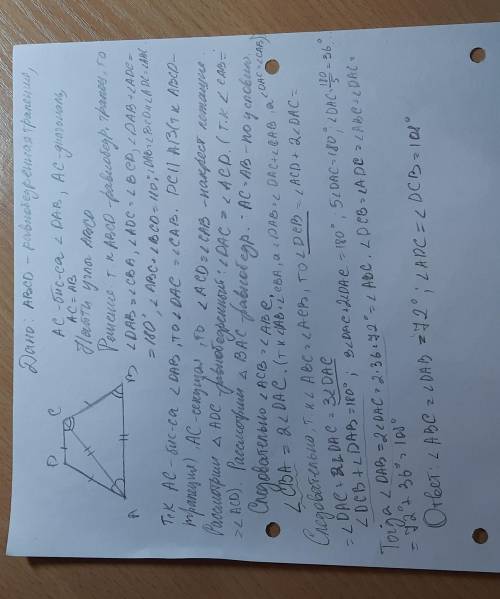 Дано: ABCD - равнобедренная трапеция,
AC - бис-са ∠DAB, AC - диагональ,
AC = AB.
Найти углы ABCD
Решение: т.к ABCD - равнобедр. трапец., то
∠DAB = ∠CBA, ∠ADC = ∠BCD, ∠DAB + ∠ADC =
= 180°, ∠ABC + ∠BCD = 180°
D C
A B
Т.к AC - бис-са ∠DAB, то ∠DAC = ∠CAB. DC || AB (т.к ABCD -
трапеция) AC - секущая, то ∠ACD = ∠CAB - накрест лежащие.
Рассмотрим △ADC - равнобедренный: ∠DAC = ∠ACD. (т.к ∠CAB =
= ∠ACD). Рассмотрим △BAC равнобедр. AC = AB - по условию.
Следовательно ∠ACB = ∠ABC.
∠CBA = 2∠DAC. (т.к ∠DAB = ∠CBA, а ∠DAB = ∠DAC + ∠CAB, а ∠DAC = ∠CAB)
Следовательно, т.к ∠ABC = ∠ACB, то ∠DCB = ∠ACD + 2∠DAC =
= ∠DAC + 2∠DAC = 3∠DAC
∠DCB + ∠DAB = 180°; 3∠DAC + 2∠DAC = 180°; 5∠DAC = 180°; ∠DAC = 180/5 = 36°
Тогда ∠DAB = 2∠DAC = 2·36 = 72° = ∠ABC. ∠DCB = ∠ADC = ∠ABC + ∠DAC =
= 72° + 36° = 108°
Ответ: ∠ABC = ∠DAB = 72°; ∠ADC = ∠DCB = 108°